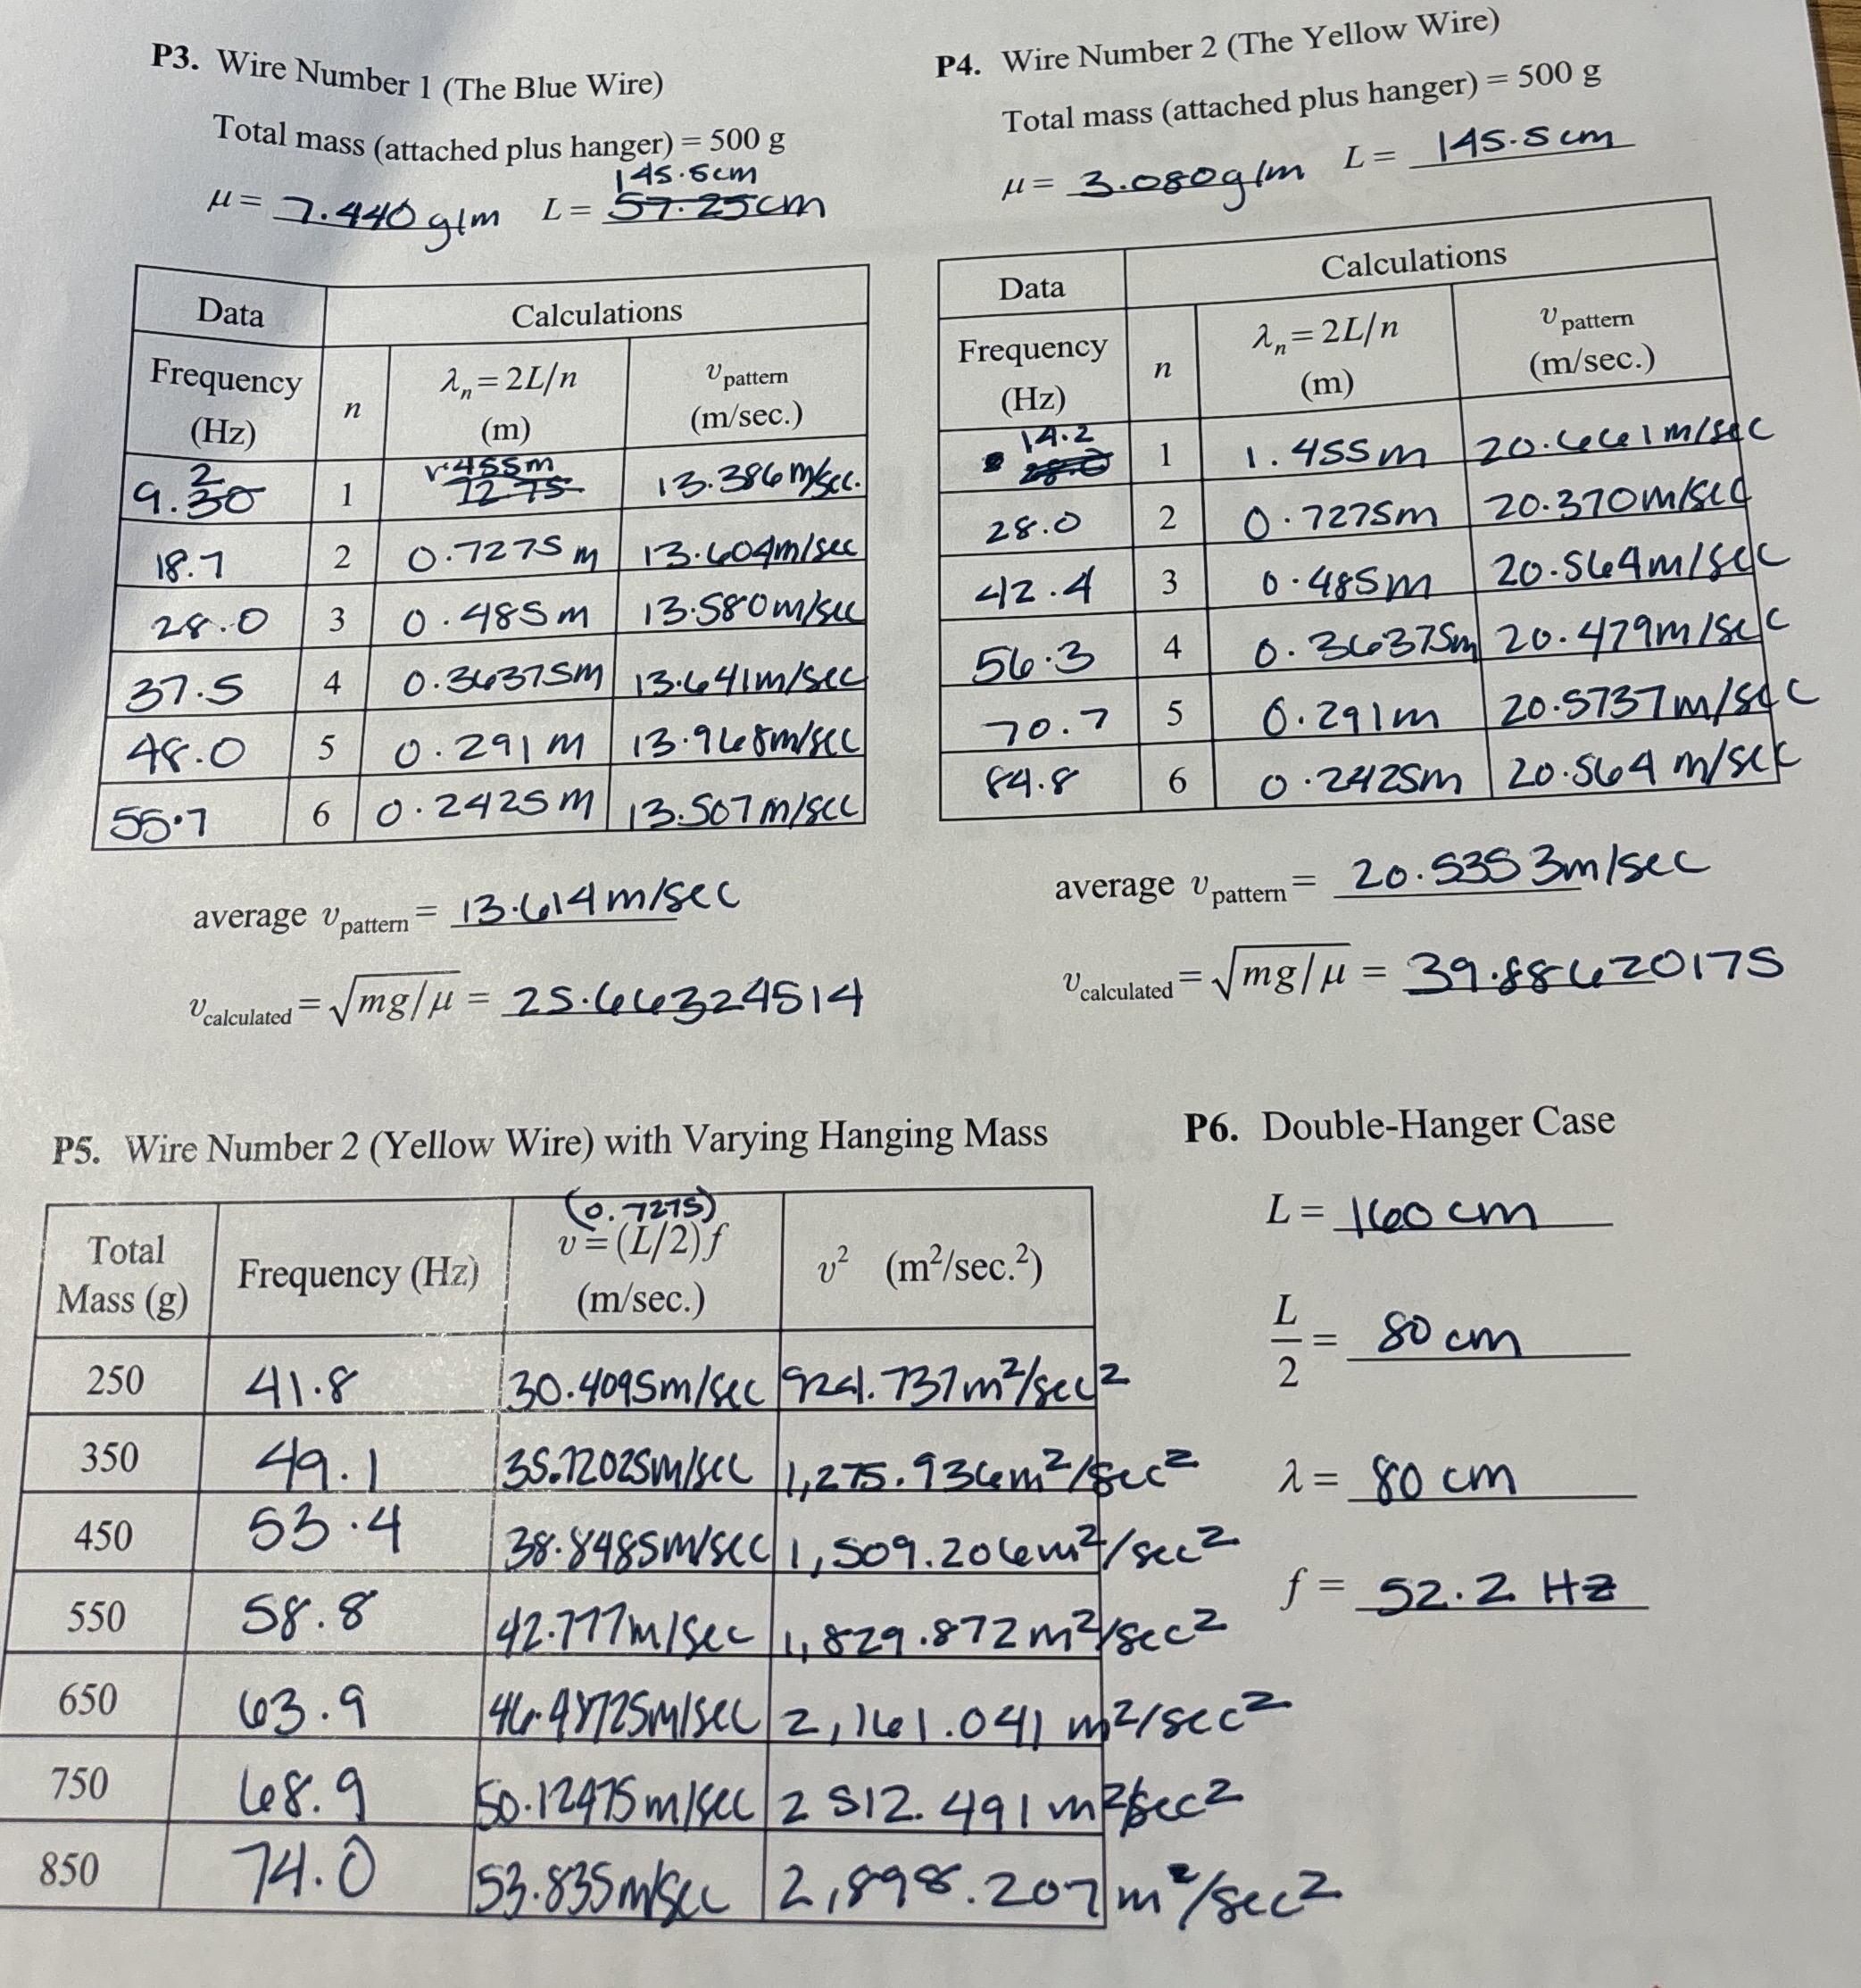 P3. Wire Number 1 (The Blue Wire)
Total mass (attached plus hanger) = 500 g
145.5cm
μ = 7.440 g/m L = 57.25cm
Data Calculations
Frequency (Hz) n λn = 2L/n (m) vpattern (m/sec.)
9.2 30 1 1.455m 72.75 13.386m/sec.
18.7 2 0.7275 m 13.604m/sec
28.0 3 0.485m 13.580m/sec
37.5 4 0.36375m 13.641m/sec
48.0 5 0.291 m 13.968m/sec
55.7 6 0.2425m 13.507m/sec
average vpattern = 13.614m/sec
vcalculated = √mg/μ = 25.66324514
P4. Wire Number 2 (The Yellow Wire)
Total mass (attached plus hanger) = 500 g
μ = 3.080g/m L = 145.5cm
Data Calculations
Frequency (Hz) n λn = 2L/n (m) vpattern (m/sec.)
14.2 28.0 1 1.455m 20.661m/sec
28.0 2 0.7275m 20.370m/sec
42.4 3 0.485m 20.564m/sec
56.3 4 0.36375m 20.479m/sec
70.7 5 0.291m 20.5737m/sec
84.8 6 0.2425m 20.564 m/sec
average vpattern = 20.5353m/sec
vcalculated = √mg/μ = 39.88620175
P5. Wire Number 2 (Yellow Wire) with Varying Hanging Mass
(0.7275)
Total Mass (g) Frequency (Hz) v = (L/2)f (m/sec.) v² (m²/sec.²)
250 41.8 30.4095m/sec 924.737m²/sec²
350 49.1 35.72025m/sec 1,275.936m²/sec²
450 53.4 38.8485m/sec 1,509.206m²/sec²
550 58.8 42.777m/sec 1,829.872m²/sec²
650 63.9 46.48725m/sec 2,161.041 m²/sec²
750 68.9 50.12475m/sec 2 512.491 m²/sec²
850 74.0 53.835m/sec 2,898.207 m²/sec²
P6. Double-Hanger Case
L = 160 cm
L/2 = 80 cm
λ = 80 cm
f = 52.2 Hz